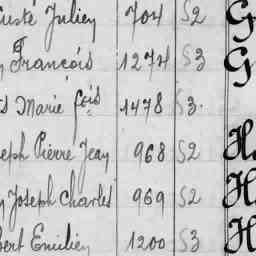 usté Julien 704 52 G
François 1274 53 G
s Marie fois 1478 53.
eph Pierre Jean 968 52 H
y Joseph Charles 969 52 H
bert Emilien 1200 53 H